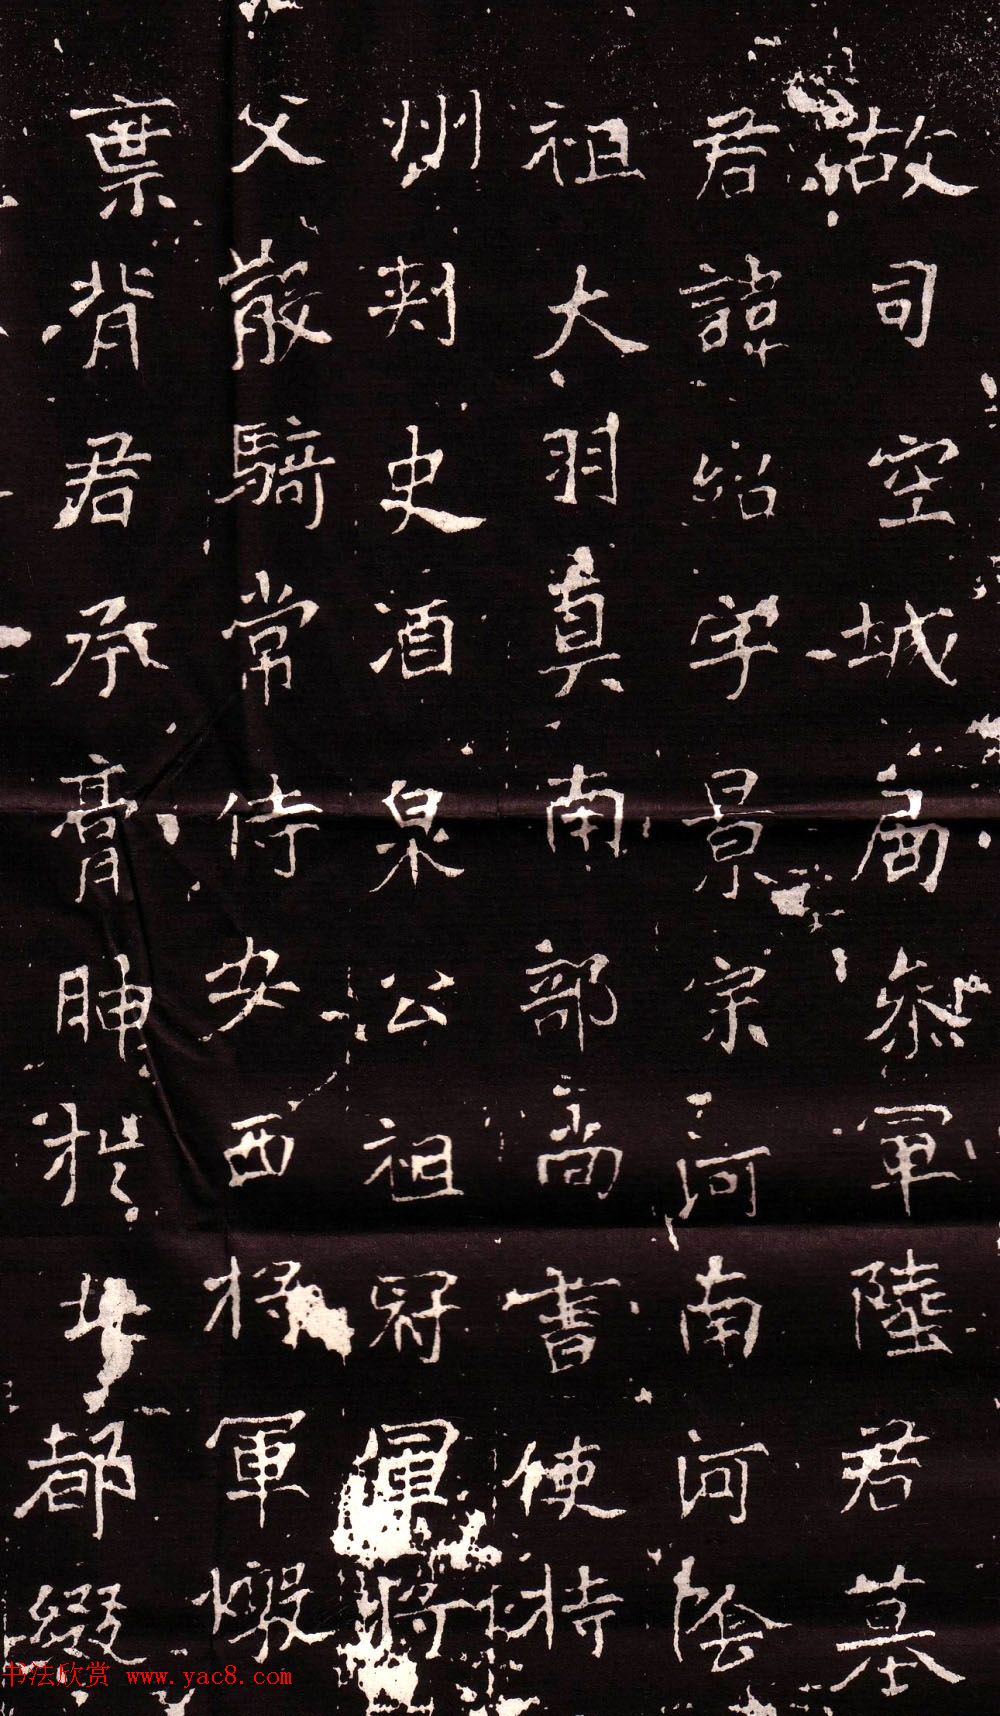 故司空城局參軍陸君墓
君諱紹字景宗河南河陰
祖大羽真南部尚書使持
州刺史酒泉公祖冠軍將
父散騎常侍安西將軍燉
稟背君承膏腴
都綴
书法欣赏 www.yac8.com